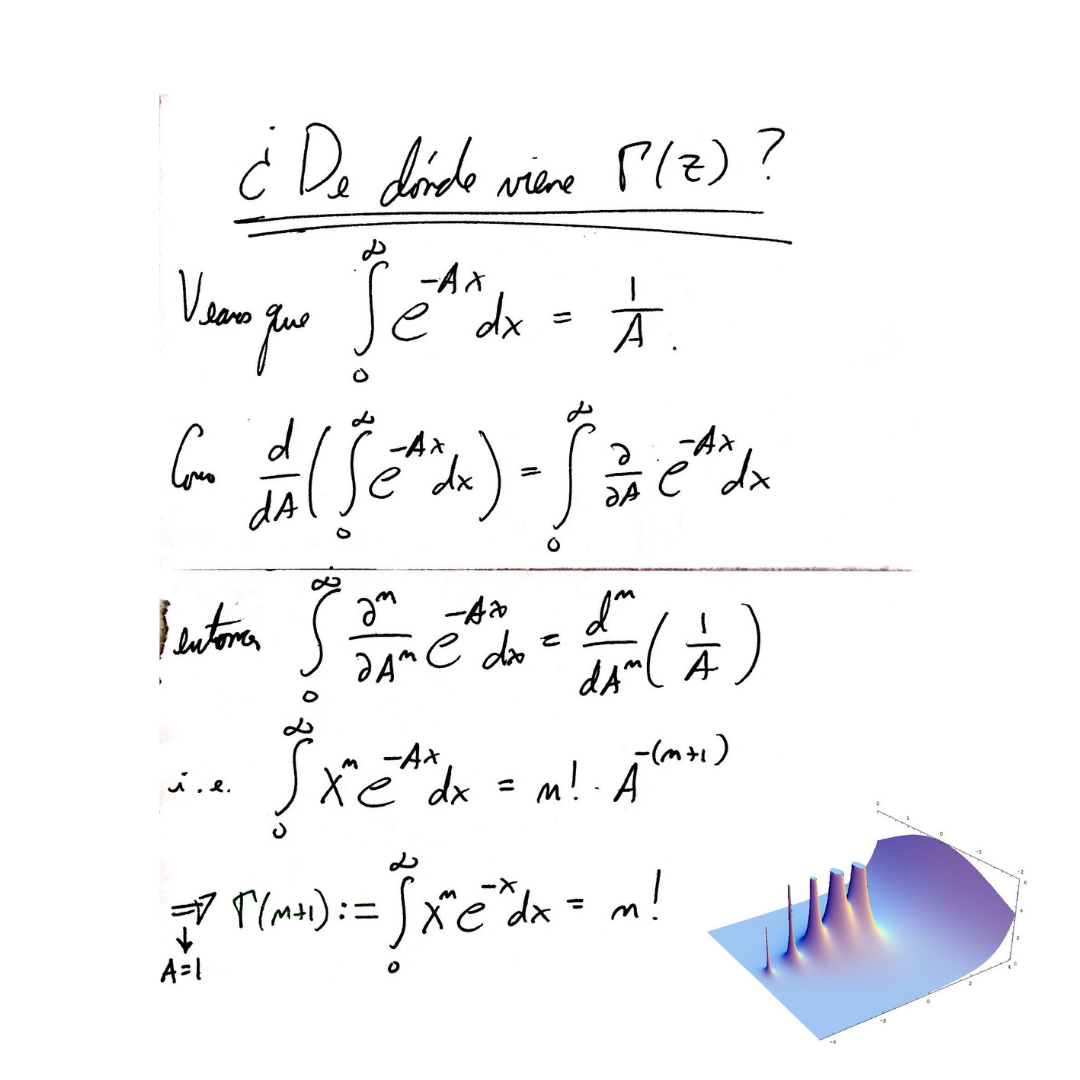 ¿De dónde viene Γ(z)?
Veamos que ∫₀^∞ e^{-Ax} dx = 1/A.
Como d/dA (∫₀^∞ e^{-Ax} dx) = ∫₀^∞ ∂/∂A e^{-Ax} dx
entonces ∫₀^∞ ∂ⁿ/∂Aⁿ e^{-Ax} dx = dⁿ/dAⁿ (1/A)
i.e. ∫₀^∞ xⁿ e^{-Ax} dx = n! · A^{-(n+1)}
⇒ Γ(n+1) := ∫₀^∞ xⁿ e^{-x} dx = n!
↓
A=1